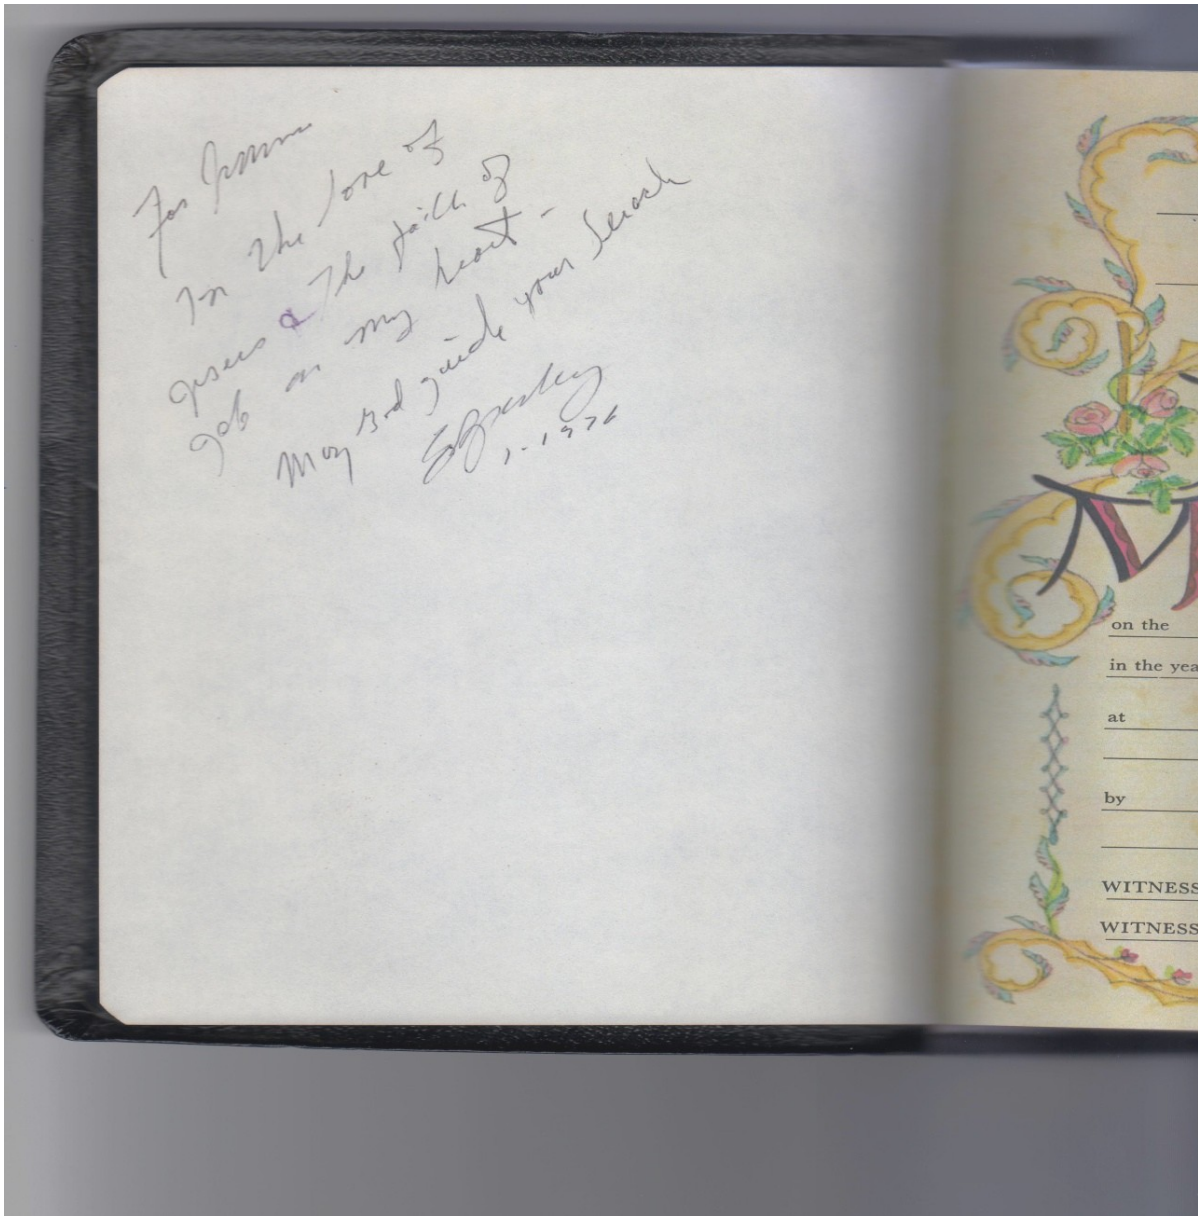 For
In the love of
Jesus & The faith of
Job on my heart -
May God guide your Search
1-1976
M
on the
in the yea
at
by
WITNESS
WITNESS